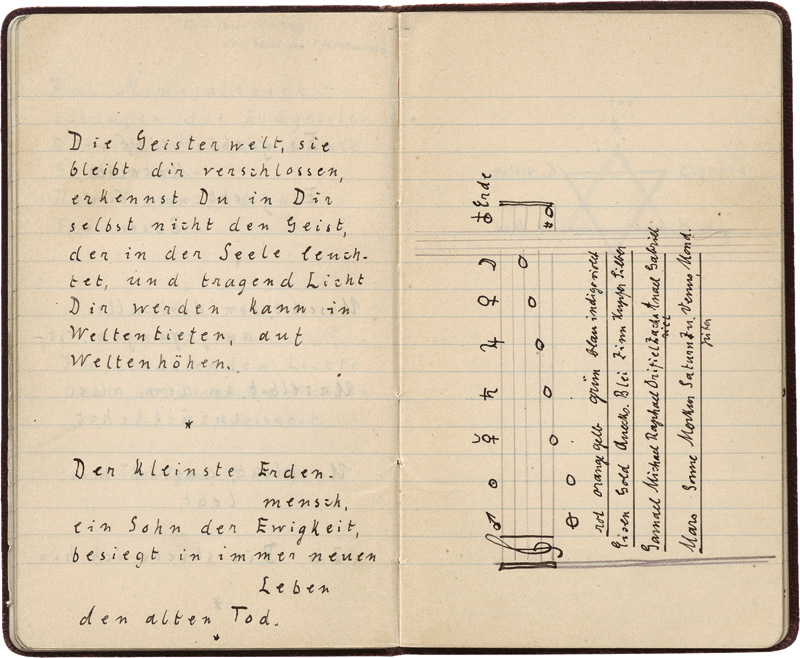 Die Geisterwelt, sie
bleibt dir verschlossen,
erkennst Du in Dir
selbst nicht den Geist,
der in der Seele leuch-
tet, und tragend Licht
Dir werden kann in
Weltentiefen, auf
Weltenhöhen.
*
Der kleinste Erden-
mensch,
ein Sohn der Ewigkeit,
besiegt in immer neuen
Leben
den alten Tod.
*
♂ ☉ ☿ ♄ ♃ ♀ ☽ ♁ Erde
rot orange gelb grün blau indigo violett
Eisen Gold Quecks. Blei Zinn Kupfer Silber
Samael Michael Raphael Orifiel Zachariel Anael Gabriel
Mars Sonne Merkur Saturn Jupiter Venus Mond.